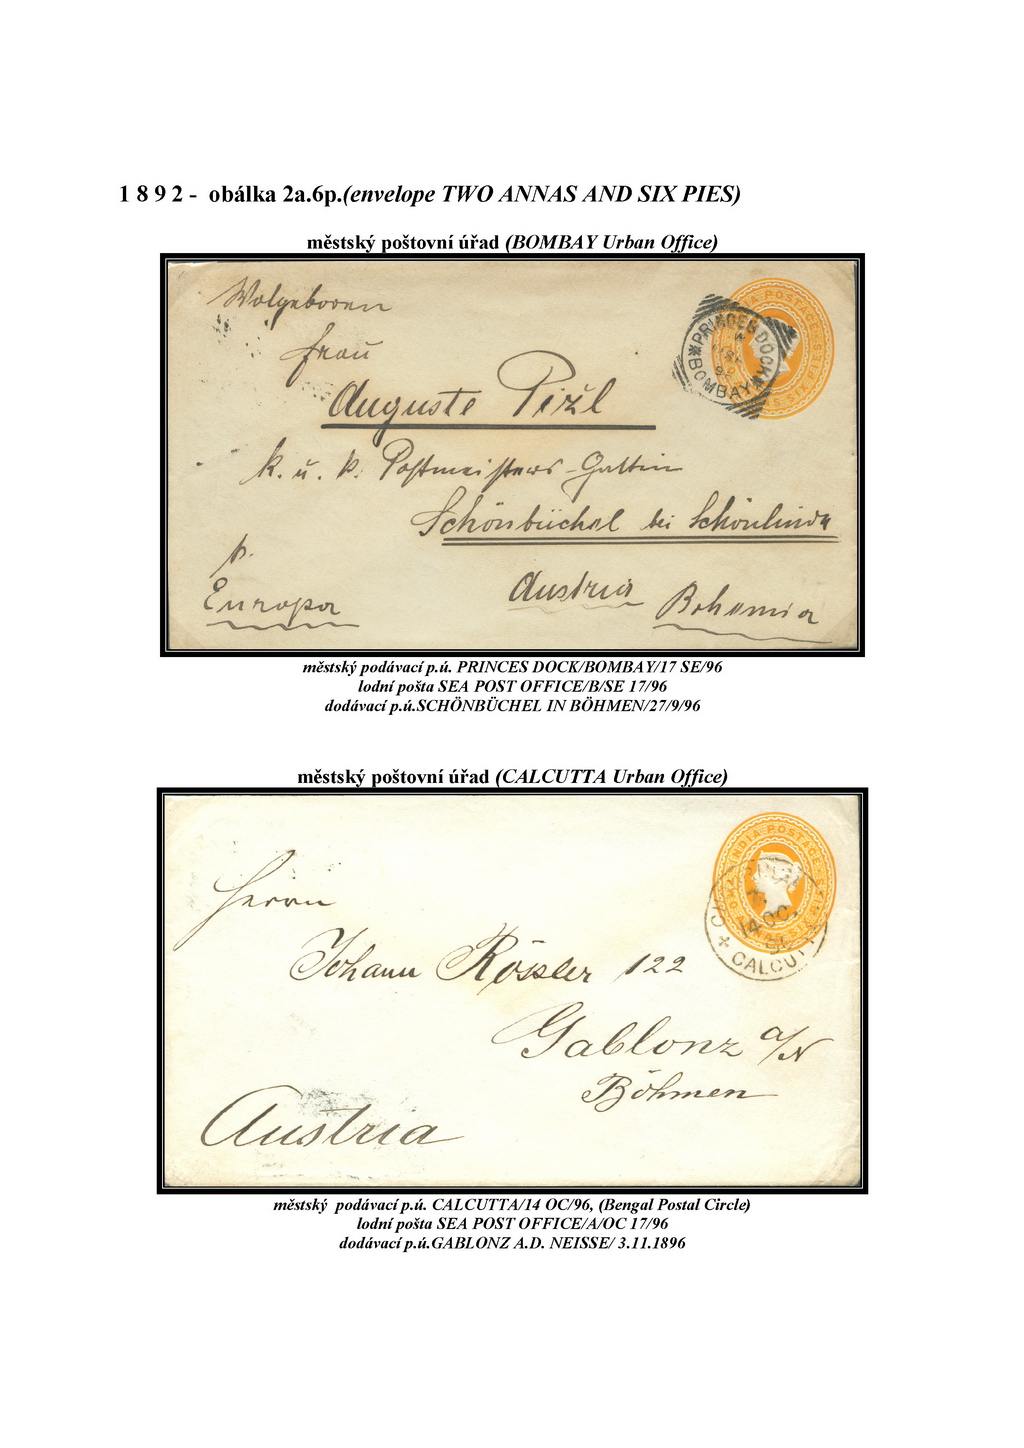 1 8 9 2 - obálka 2a.6p.(envelope TWO ANNAS AND SIX PIES)
městský poštovní úřad (BOMBAY Urban Office)
Wolgeboren
Frau
Auguste Pižl
k. u. k. Postmeisters-Gattin
Schönbüchel bei Schönlinde
p.
Europa
Austria Bohemia
PRINCES DOCK
BOMBAY
městský podávací p.ú. PRINCES DOCK/BOMBAY/17 SE/96
lodní pošta SEA POST OFFICE/B/SE 17/96
dodávací p.ú.SCHÖNBÜCHEL IN BÖHMEN/27/9/96
městský poštovní úřad (CALCUTTA Urban Office)
INDIA POSTAGE
14 OC
CALCUT
Herrn
Johann Rössler 122
Gablonz a/N
Böhmen
Austria
městský podávací p.ú. CALCUTTA/14 OC/96, (Bengal Postal Circle)
lodní pošta SEA POST OFFICE/A/OC 17/96
dodávací p.ú.GABLONZ A.D. NEISSE/ 3.11.1896